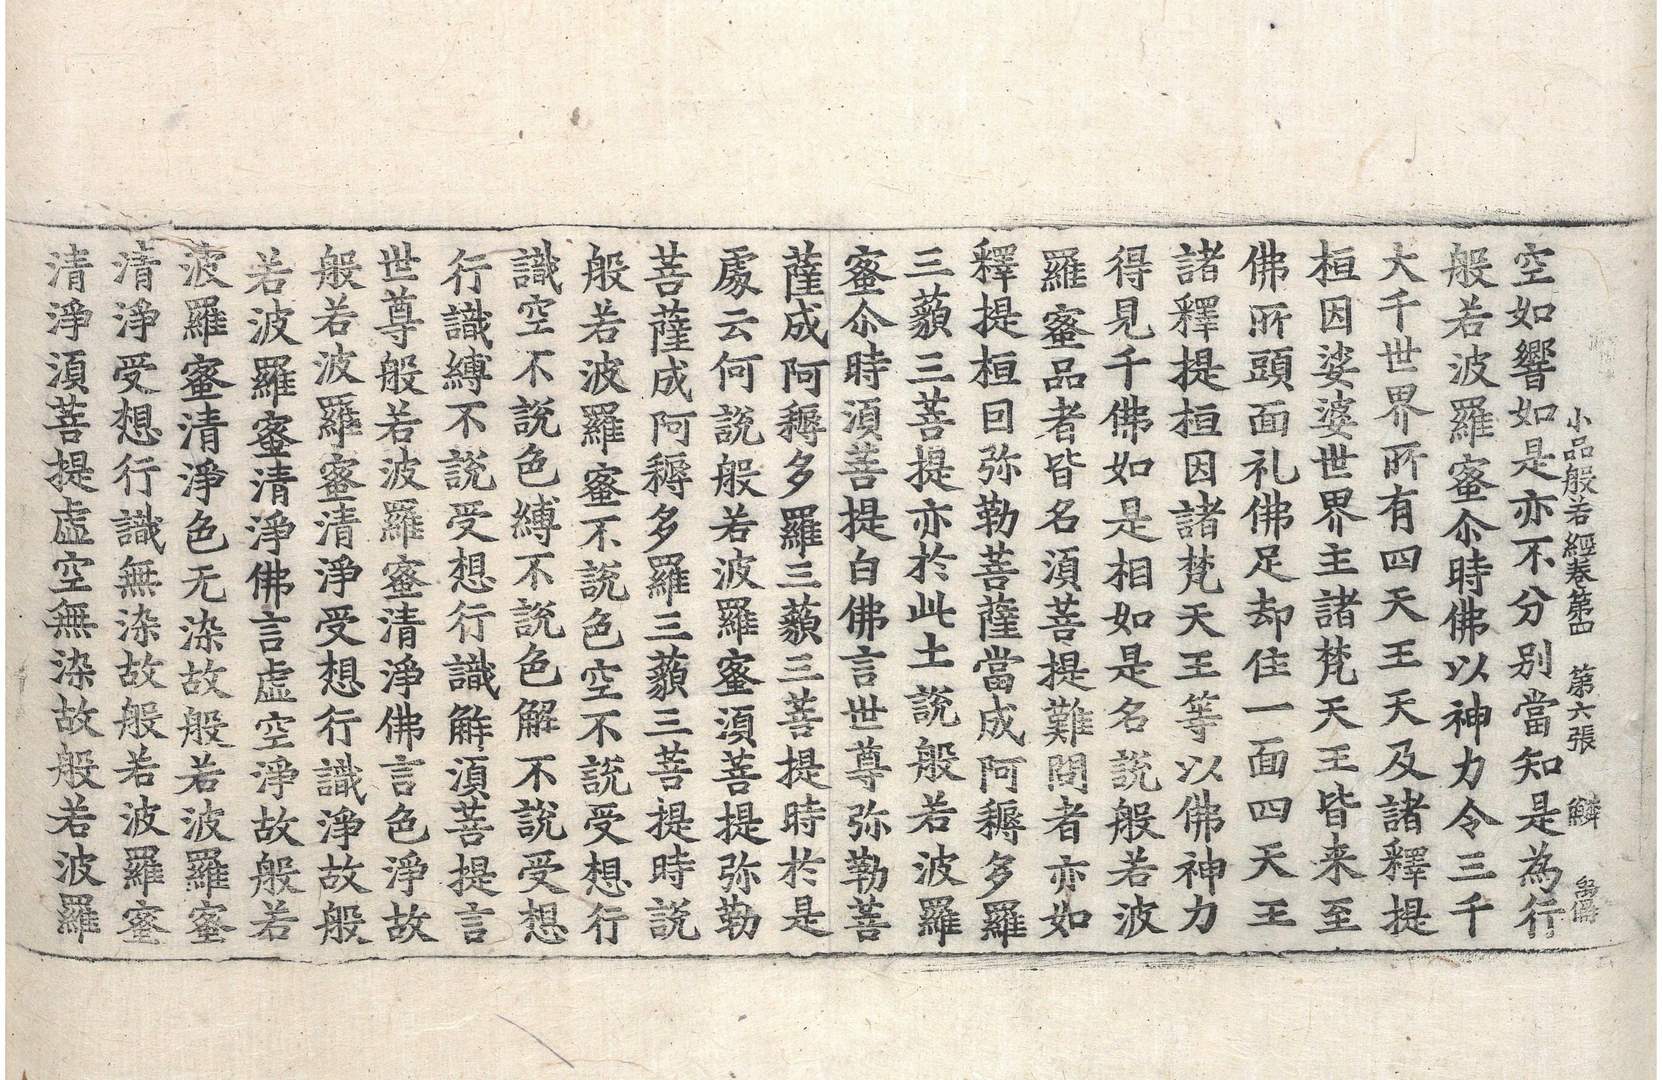 小品般若經卷第四 第六張 鱗
空如響如是亦不分別當知是為行
般若波羅蜜尒時佛以神力令三千
大千世界所有四天王天及諸釋提
桓因娑婆世界主諸梵天王皆来至
佛所頭面礼佛足却住一面四天王
諸釋提桓因諸梵天王等以佛神力
得見千佛如是相如是名說般若波
羅蜜品者皆名湏菩提難問者亦如
釋提桓曰弥勒菩薩當成阿耨多羅
三藐三菩提亦於此土說般若波羅
蜜尒時湏菩提白佛言世尊弥勒菩
薩成阿耨多羅三藐三菩提時於是
處云何說般若波羅蜜湏菩提弥勒
菩薩成阿耨多羅三藐三菩提時說
般若波羅蜜不說色空不說受想行
識空不說色縛不說色解不說受想
行識縛不說受想行識解湏菩提言
世尊般若波羅蜜清淨佛言色淨故
般若波羅蜜清淨受想行識淨故般
若波羅蜜清淨佛言虛空淨故般若
波羅蜜清淨色无染故般若波羅蜜
清淨受想行識無染故般若波羅蜜
清淨湏菩提虛空無染故般若波羅